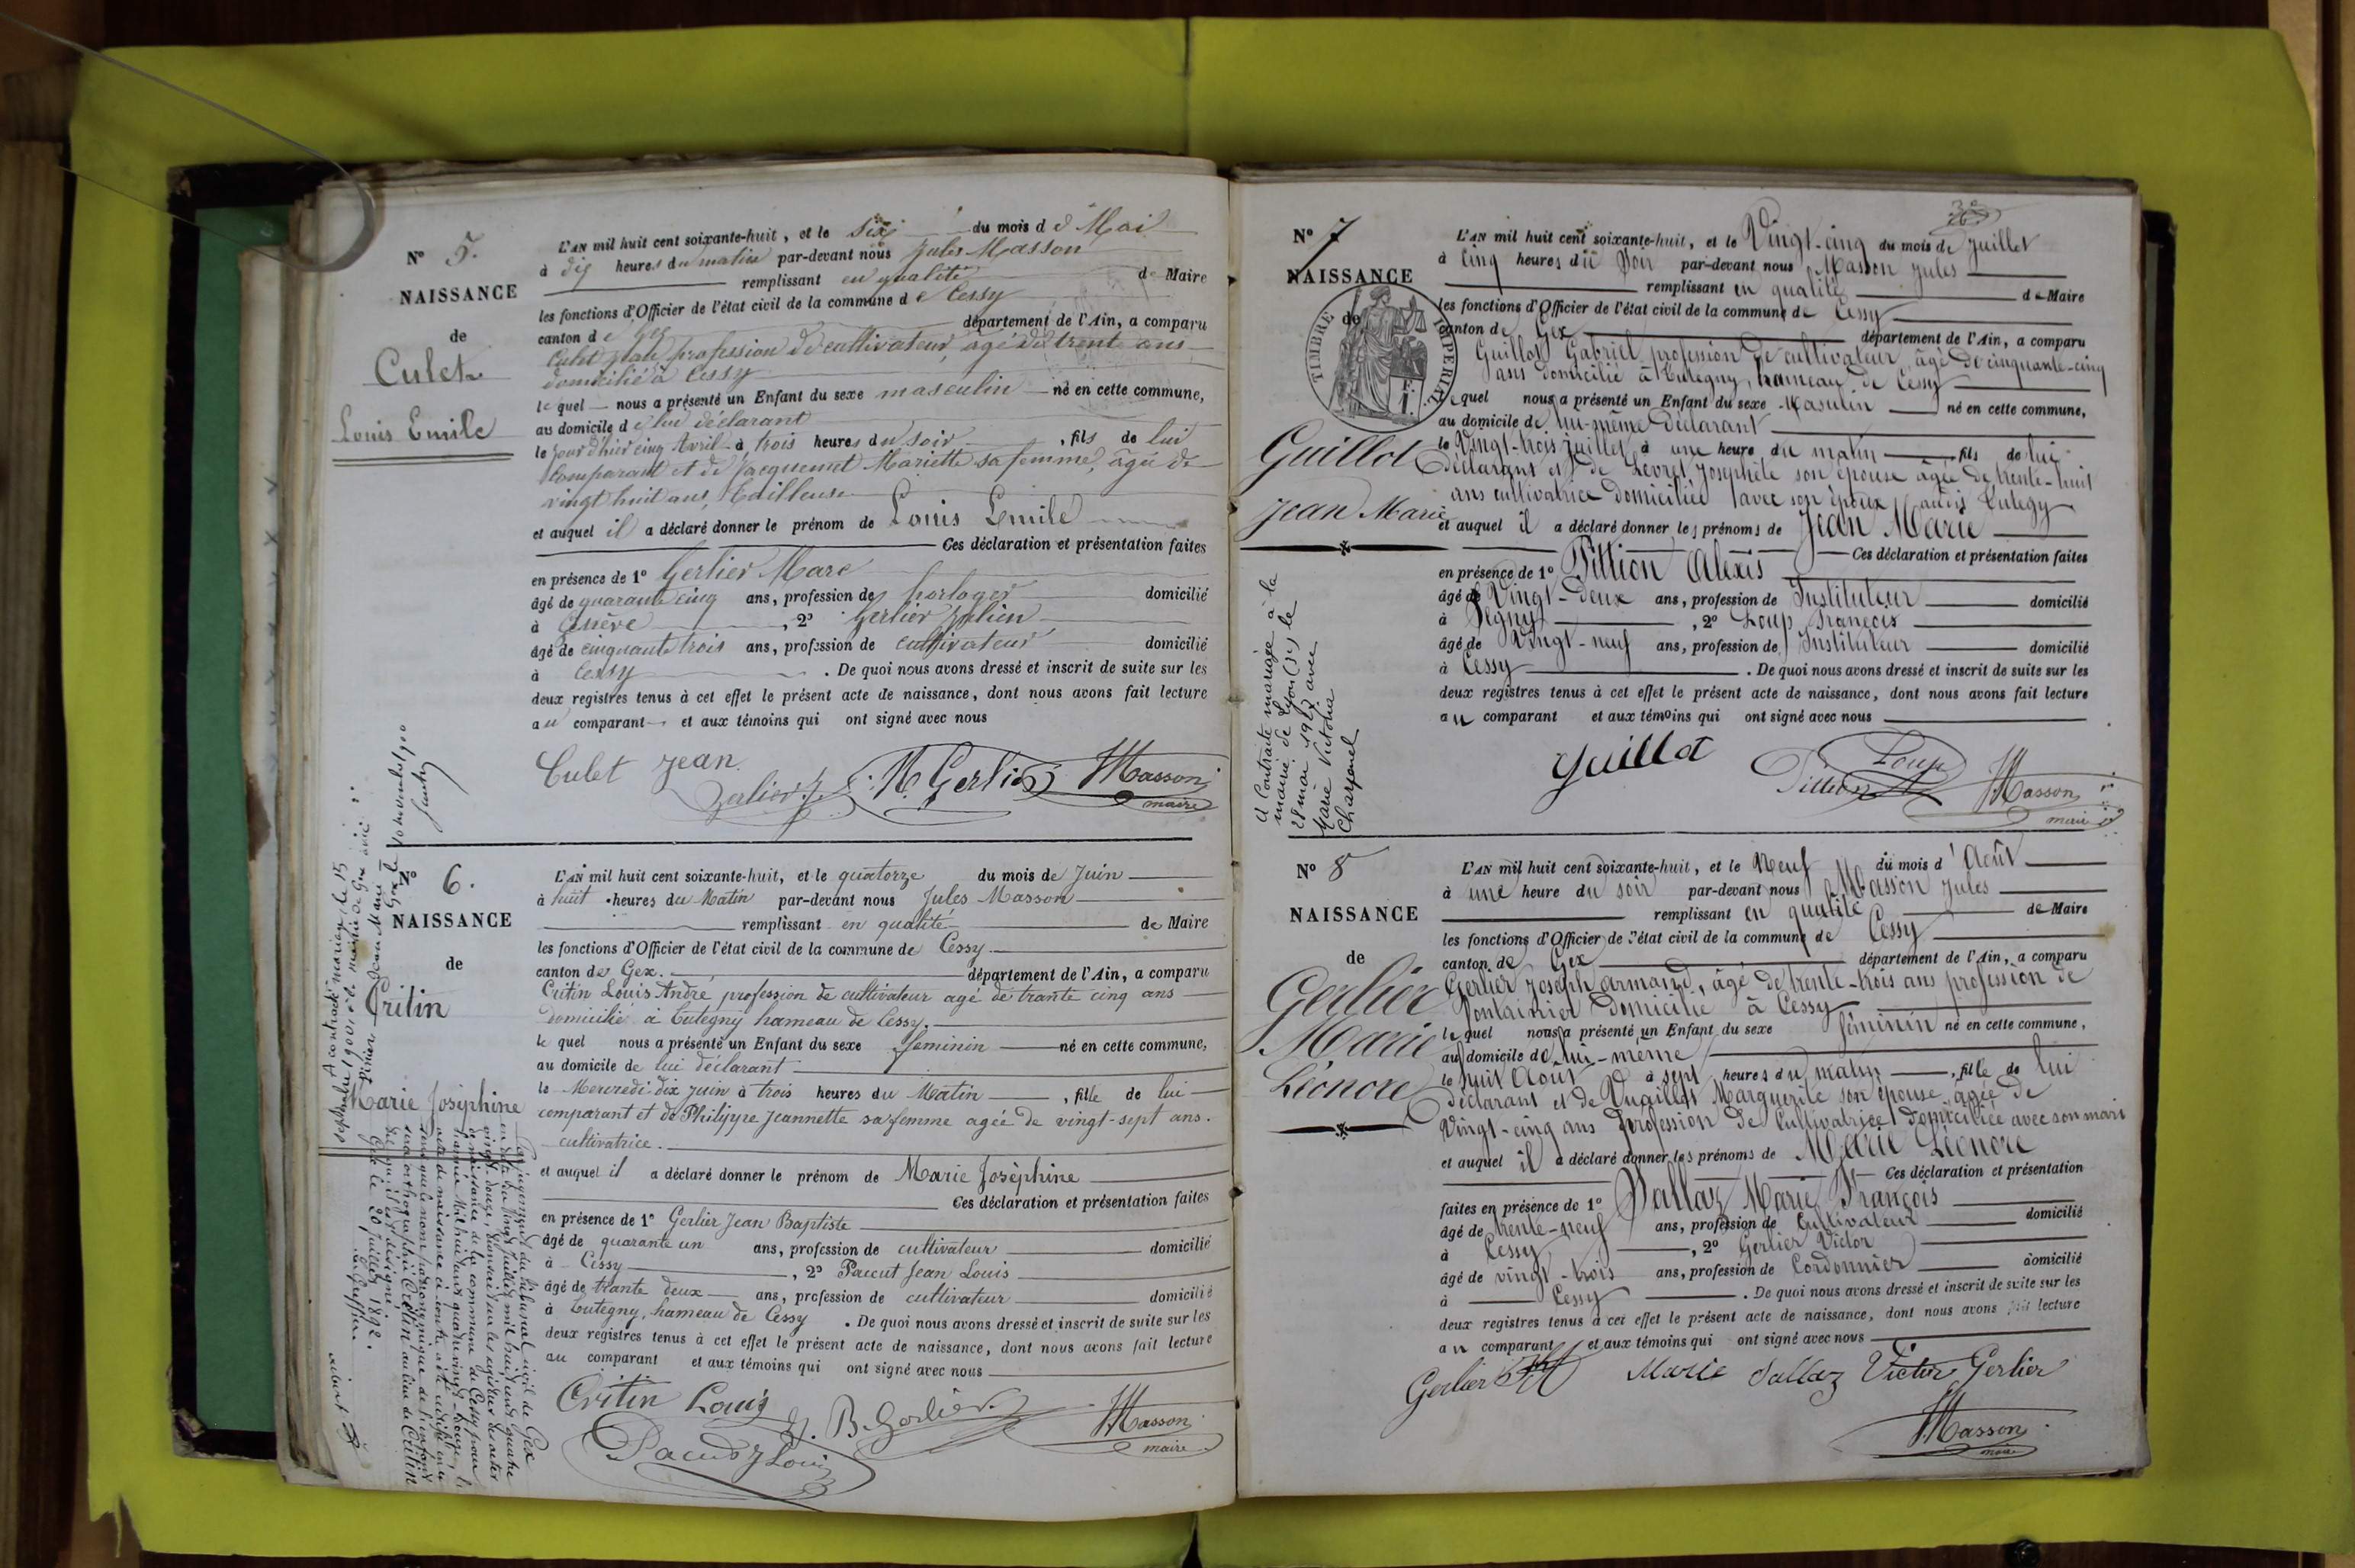 N° 5.
NAISSANCE
de
Culet
Louis Emile
L'AN mil huit cent soixante-huit, et le Six du mois de Mai
à dix heures du matin par-devant nous Jules Masson
remplissant en qualité de Maire
les fonctions d'Officier de l'état civil de la commune de Cessy
canton de Gex département de l'Ain, a comparu
Culet Jean, profession de cultivateur, âgé de trente ans
domicilié à Cessy
lequel nous a présenté un Enfant du sexe masculin né en cette commune,
au domicile de lui déclarant
le jour d'hier cinq Avril à trois heures du soir, fils de lui
Comparant et de Jacquemet Mariette sa femme, âgée de
vingt huit ans, tailleuse
et auquel il a déclaré donner le prénom de Louis Emile
Ces déclaration et présentation faites
en présence de 1° Gerlier Marc
âgé de quarante cinq ans, profession de horloger domicilié
à Genève, 2° Gerlier Julien
âgé de cinquante trois ans, profession de cultivateur domicilié
à Cessy. De quoi nous avons dressé et inscrit de suite sur les
deux registres tenus à cet effet le présent acte de naissance, dont nous avons fait lecture
au comparant et aux témoins qui ont signé avec nous
Culet Jean
Gerlier J.
M. Gerlier
J. Masson
maire
N° 6.
NAISSANCE
de
Critin
Marie Joséphine
A contracté mariage le 15
septembre 1900, à la mairie de Gex avec
Jean Marie
L'AN mil huit cent soixante-huit, et le quatorze du mois de Juin
à huit heures du Matin par-devant nous Jules Masson
remplissant en qualité de Maire
les fonctions d'Officier de l'état civil de la commune de Cessy
canton de Gex. département de l'Ain, a comparu
Critin Louis André profession de cultivateur agé de trante cinq ans
domicilié à Tutegny hameau de Cessy.
lequel nous a présenté un Enfant du sexe feminin né en cette commune,
au domicile de lui déclarant
le Mercredi dix juin à trois heures du Matin, fille de lui
comparant et de Philippe Jeannette sa femme agée de vingt-sept ans.
cultivatrice.
et auquel il a déclaré donner le prénom de Marie Josèphine
Ces déclaration et présentation faites
en présence de 1° Gerlier Jean Baptiste
âgé de quarante un ans, profession de cultivateur domicilié
à Cessy, 2° Paccut Jean Louis
âgé de trante deux ans, profession de cultivateur domicilié
à Tutegny, hameau de Cessy. De quoi nous avons dressé et inscrit de suite sur les
deux registres tenus à cet effet le présent acte de naissance, dont nous avons fait lecture
au comparant et aux témoins qui ont signé avec nous
Critin Louis
J. B. Gerlier
J. Masson
maire
Par jugement du tribunal civil de Gex
Gex le 20 juillet 1892.
Le Greffier
N° 7
NAISSANCE
de
TIMBRE IMPERIAL
Guillot
Jean Marie
A Contracté mariage à la
mairie de Lyon (3e) le
28 mai 1927 avec
Marie Victoria
L'AN mil huit cent soixante-huit, et le Vingt-cinq du mois de Juillet
à Cinq heures du Soir par-devant nous Masson Jules
remplissant en qualité de Maire
les fonctions d'Officier de l'état civil de la commune de Cessy
canton de Gex département de l'Ain, a comparu
Guillot Gabriel profession de cultivateur, âgé de cinquante-cinq
ans domicilié à Tutegny, hameau de Cessy
lequel nous a présenté un Enfant du sexe Masulin né en cette commune,
au domicile de lui-même déclarant
le Vingt-trois juillet à une heure du matin fils de lui
déclarant et de Levret Josephte son épouse âgée de trente-huit
ans cultivatrice domiciliée avec son époux audit Tutegy
et auquel il a déclaré donner les prénoms de Jean Marie
Ces déclaration et présentation faites
en présence de 1° Pillion Alexis
âgé de Vingt-deux ans, profession de Instituteur domicilié
à Segny, 2° Loup François
âgé de Vingt-neuf ans, profession de Instituteur domicilié
à Cessy. De quoi nous avons dressé et inscrit de suite sur les
deux registres tenus à cet effet le présent acte de naissance, dont nous avons fait lecture
au comparant et aux témoins qui ont signé avec nous
Guillot
Pillion
Loup
J. Masson
maire
N° 8
NAISSANCE
de
Gerlier
Marie
Léonore
L'AN mil huit cent soixante-huit, et le Neuf du mois d'Août
à une heure du soir par-devant nous Masson Jules
remplissant en qualité de Maire
les fonctions d'Officier de l'état civil de la commune de Cessy
canton de Gex département de l'Ain, a comparu
Gerlier Joseph armand, âgé de trente-trois ans profession de
fontainier domicilié à Cessy
lequel nous a présenté un Enfant du sexe féminin né en cette commune,
au domicile de lui-même
le huit Août à sept heures du matin, fille de lui
déclarant et de Vuaillet Marguerite son épouse âgée de
Vingt-cinq ans profession de Cultivatrice domiciliée avec son mari
et auquel il a déclaré donner les prénoms de Marie Léonore
Ces déclaration et présentation
faites en présence de 1° Dallaz Marie François
âgé de trente-neuf ans, profession de Cultivateur domicilié
à Cessy, 2° Gerlier Victor
âgé de vingt-trois ans, profession de Cordonnier domicilié
à Cessy. De quoi nous avons dressé et inscrit de suite sur les
deux registres tenus à cet effet le présent acte de naissance, dont nous avons fait lecture
au comparant et aux témoins qui ont signé avec nous
Gerlier
Marie Dallaz Victor Gerlier
J. Masson
maire